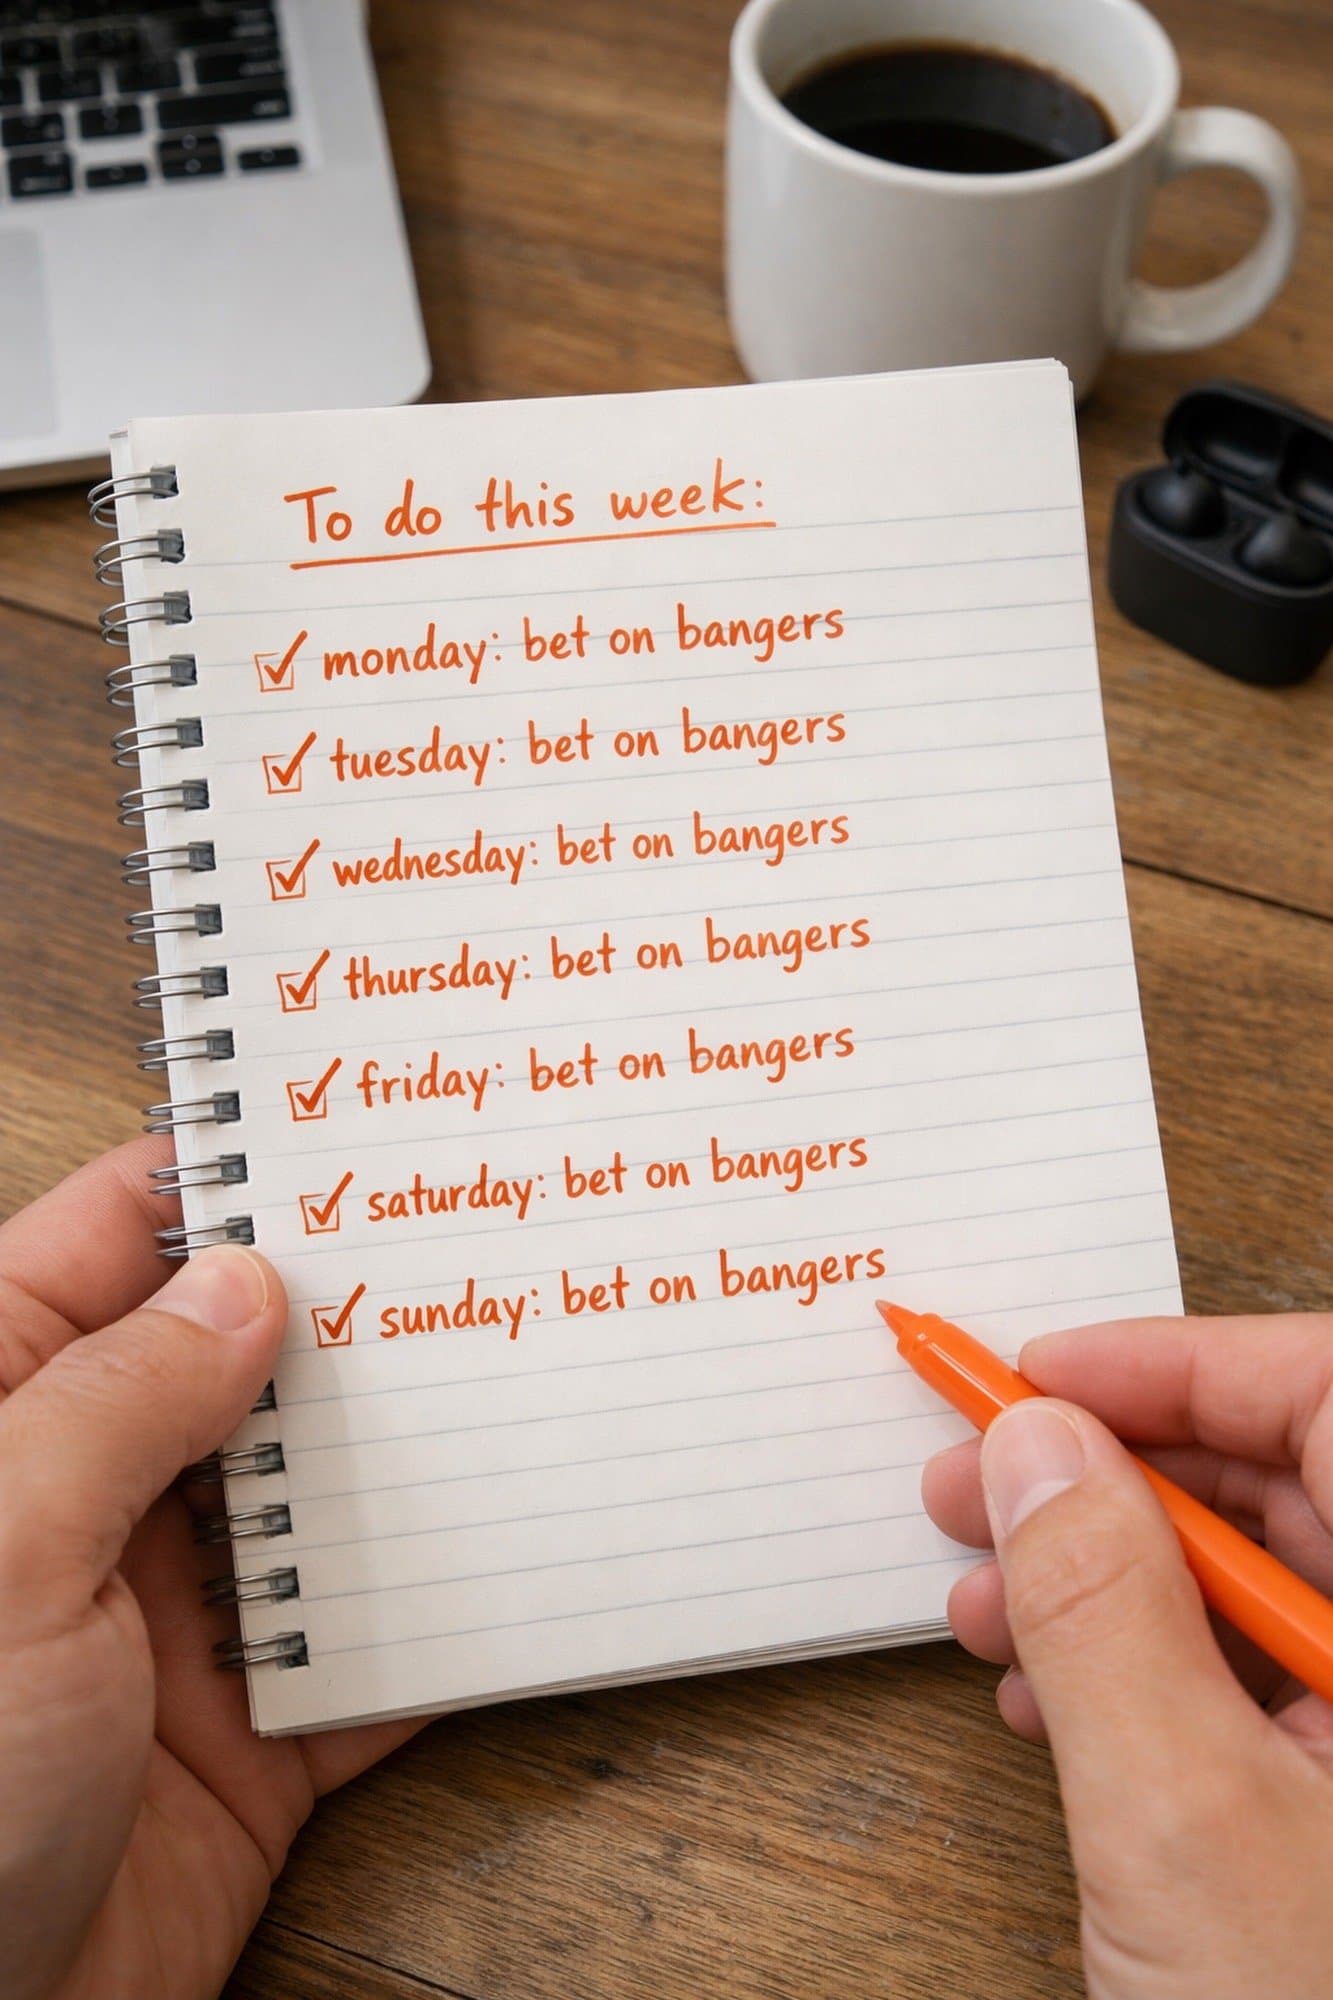 To do this week:
monday: bet on bangers
tuesday: bet on bangers
wednesday: bet on bangers
thursday: bet on bangers
friday: bet on bangers
saturday: bet on bangers
sunday: bet on bangers